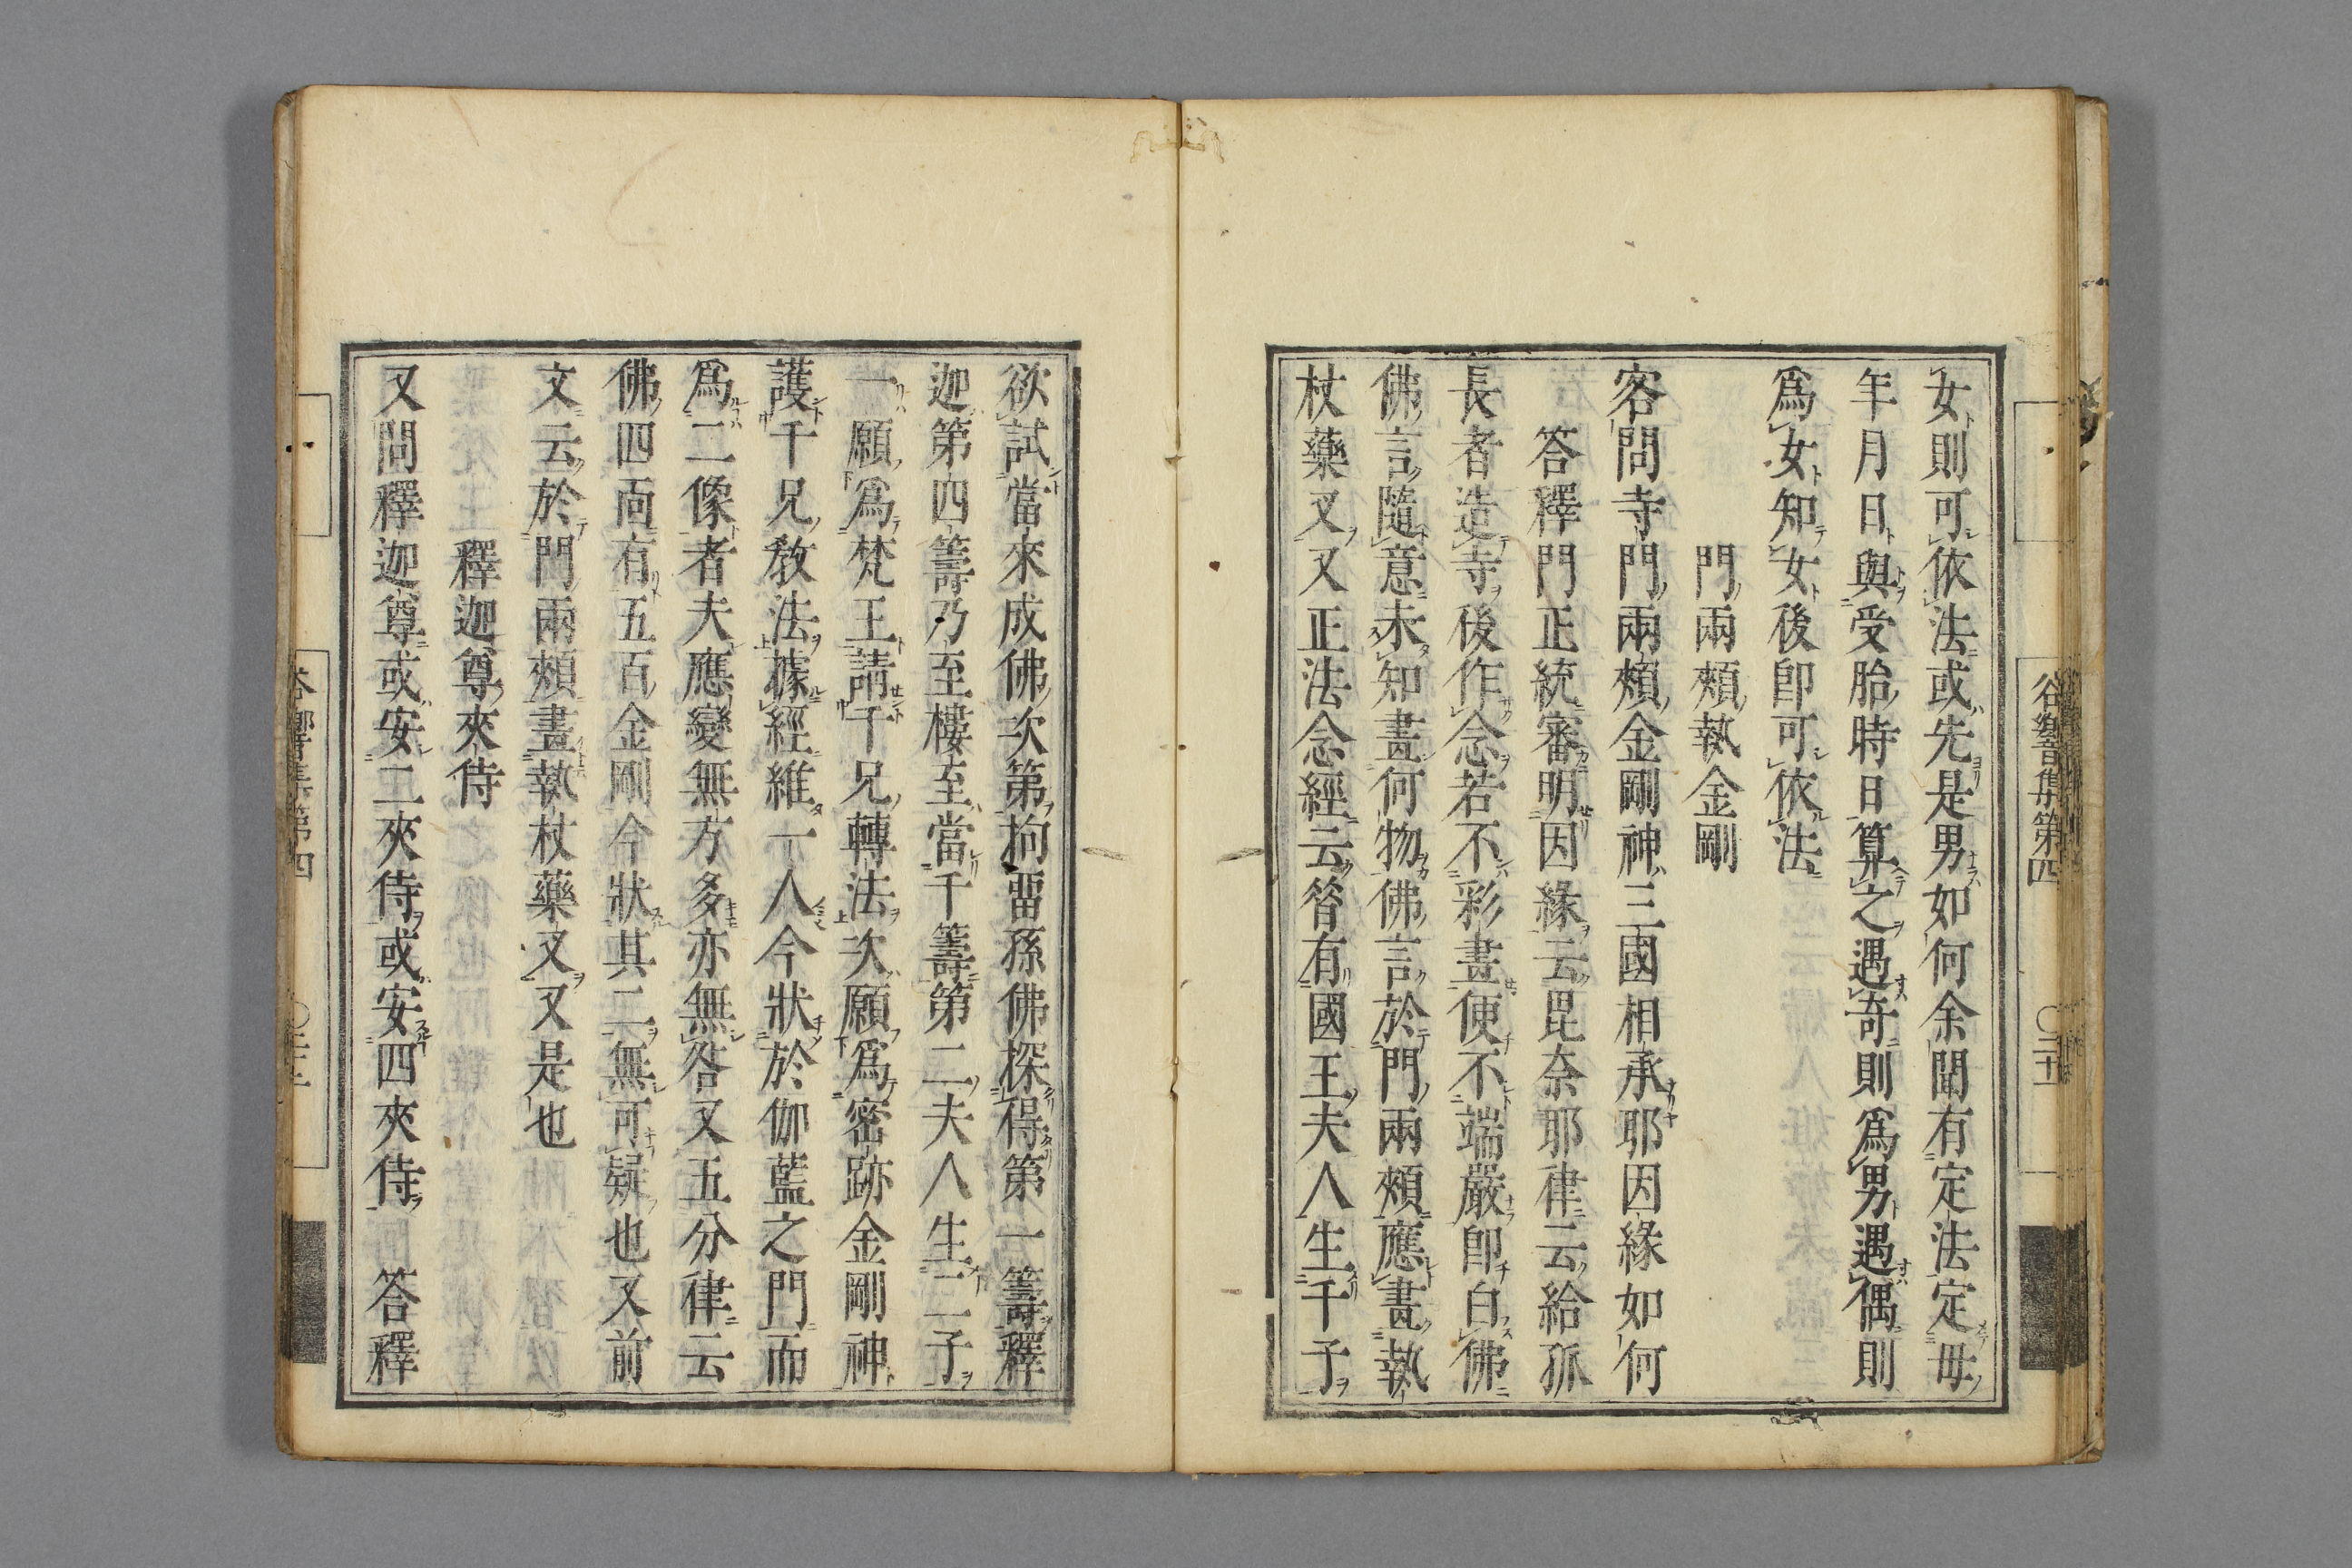 女則可依法或先是男如何余聞有定法定毋
年月日與受胎時日算之遇奇則爲男遇偶則
爲女知女後卽可依法
門兩頰執金剛
客問寺門兩頰金剛神三國相承耶因緣如何
答釋門正統審明因緣云毘奈耶律云給孤
長者造寺後作念若不彩畫便不端嚴卽白佛
佛言隨意未知畫何物佛言於門兩頰應畫執
杖藥叉又正法念經云昔有國王夫人生千子
谷響集第四
欲試當來成佛次第拘畱孫佛探得第一籌釋
迦第四籌乃至樓至當千籌第二夫人生二子
一願爲梵王請千兄轉法次願爲密跡金剛神
護千兄敎法據經維一人今狀於伽藍之門而
爲二像者夫應變無方多亦無咎又五分律云
佛四面有五百金剛今狀其二無可疑也又前
文云於門兩頰畫執杖藥叉又是也
釋迦尊夾侍
又問釋迦尊或安二夾侍或安四夾侍 答釋